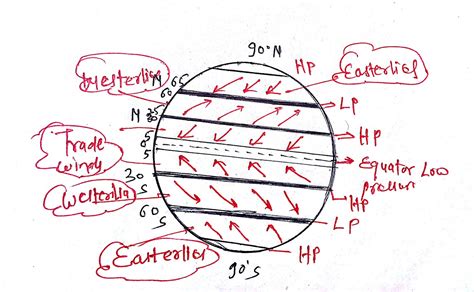 90°N
HP
Easterlies
Westerlies
N 65
60
LP
N 35
30
HP
5
0
5
Trade
winds
Equator Low
Pressure
30
S
HP
Westerlies
60
S
LP
Easterlies
HP
90°S